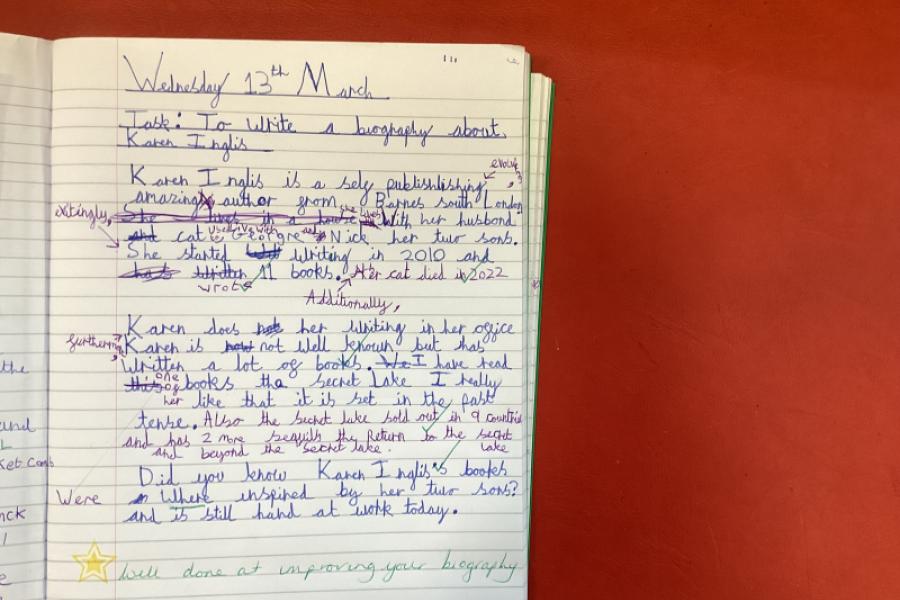 Wednesday 13th March
Task: To write a biography about
Karen Inglis
Karen Inglis is a self publishlishing,
amazing author from Barnes south London
She lives in a house she lives With her husband
and cat used live with Georgre and Nick her two sons.
She started writing in 2010 and
has written 11 books. Her cat died in 2022
wrote
Additionally,
Karen does her writing in her office
Karen is not well known but has
written a lot of books. I have read
this one of books the secret Lake I really
her like that it is set in the past
tense. Also the secret lake sold out in 9 countris
and has 2 more sequils the Return to the secret
and beyond the secret lake. lake
Did you know Karen Inglis's books
Were Where inspired by her two sons?
and is still hard at work today.
Well done at improving your biography
the
and
L
Ket Comb
nck
e